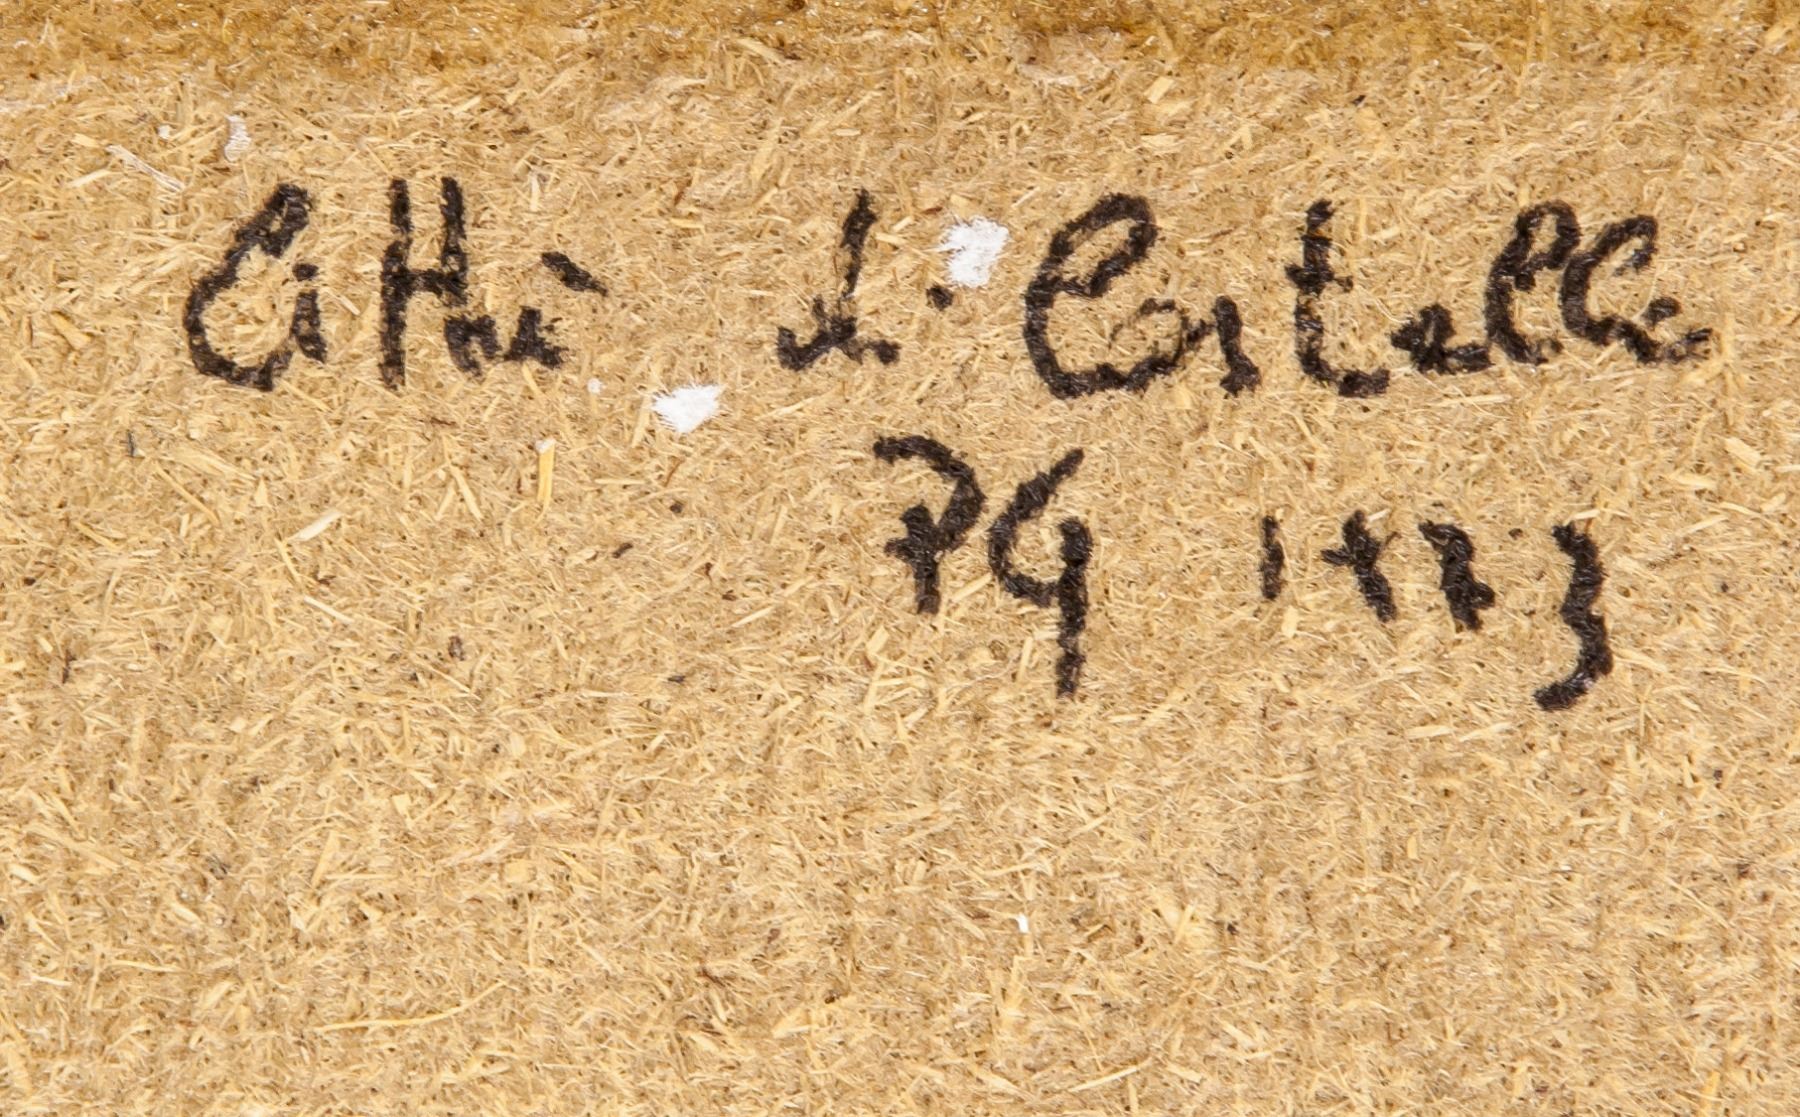 Città di Castello
PG